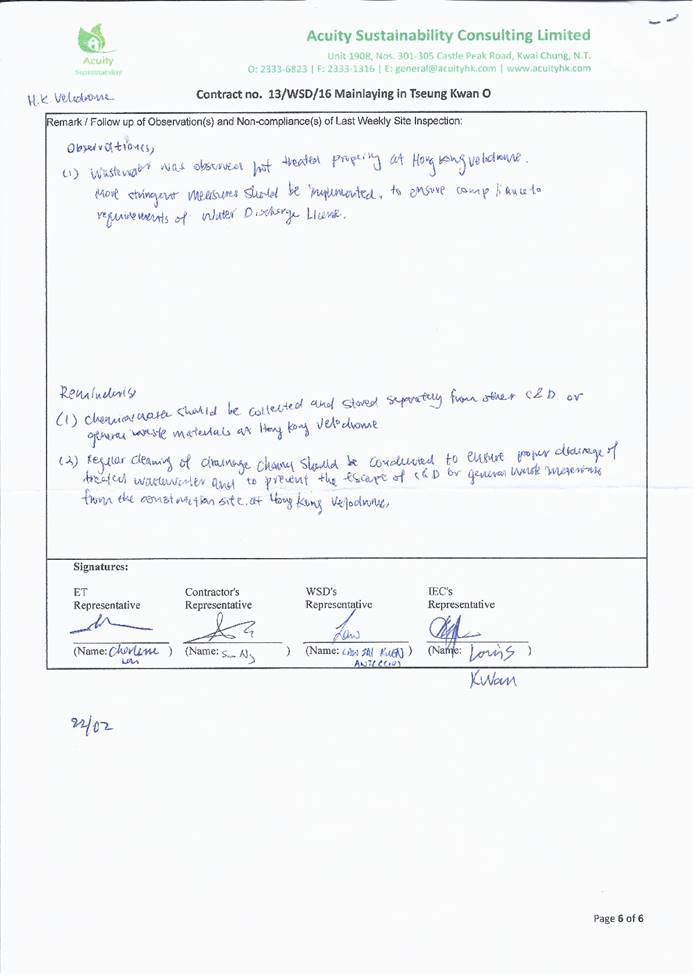 Acuity Sustainability Consulting Limited
Unit 1908, Nos. 301-305 Castle Peak Road, Kwai Chung, N.T.
O: 2333-6823 | F: 2333-1316 | E: general@acuityhk.com | www.acuityhk.com
Acuity
Sustainability
H.K. Velodrome
Contract no. 13/WSD/16 Mainlaying in Tseung Kwan O
Remark / Follow up of Observation(s) and Non-compliance(s) of Last Weekly Site Inspection:
Observation(s)
(1) Wastewater was observed not treated properly at Hong Kong velodrome.
More stringent measures should be implemented, to ensure compliance to
requirements of Water Discharge License.
Reminder(s)
(1) Chemical waste should be collected and stored separately from other C&D or
general waste materials at Hong Kong Velodrome
(2) Regular cleaning of drainage channel should be conducted to ensure proper drainage of
treated wastewater and to prevent the escape of C&D or general waste materials
from the construction site at Hong Kong Velodrome,
Signatures:
ET
Representative
Contractor's
Representative
WSD's
Representative
IEC's
Representative
(Name: Charlene )
(Name: )
(Name: )
(Name: Louis )
Kwan
22/02
Page 6 of 6